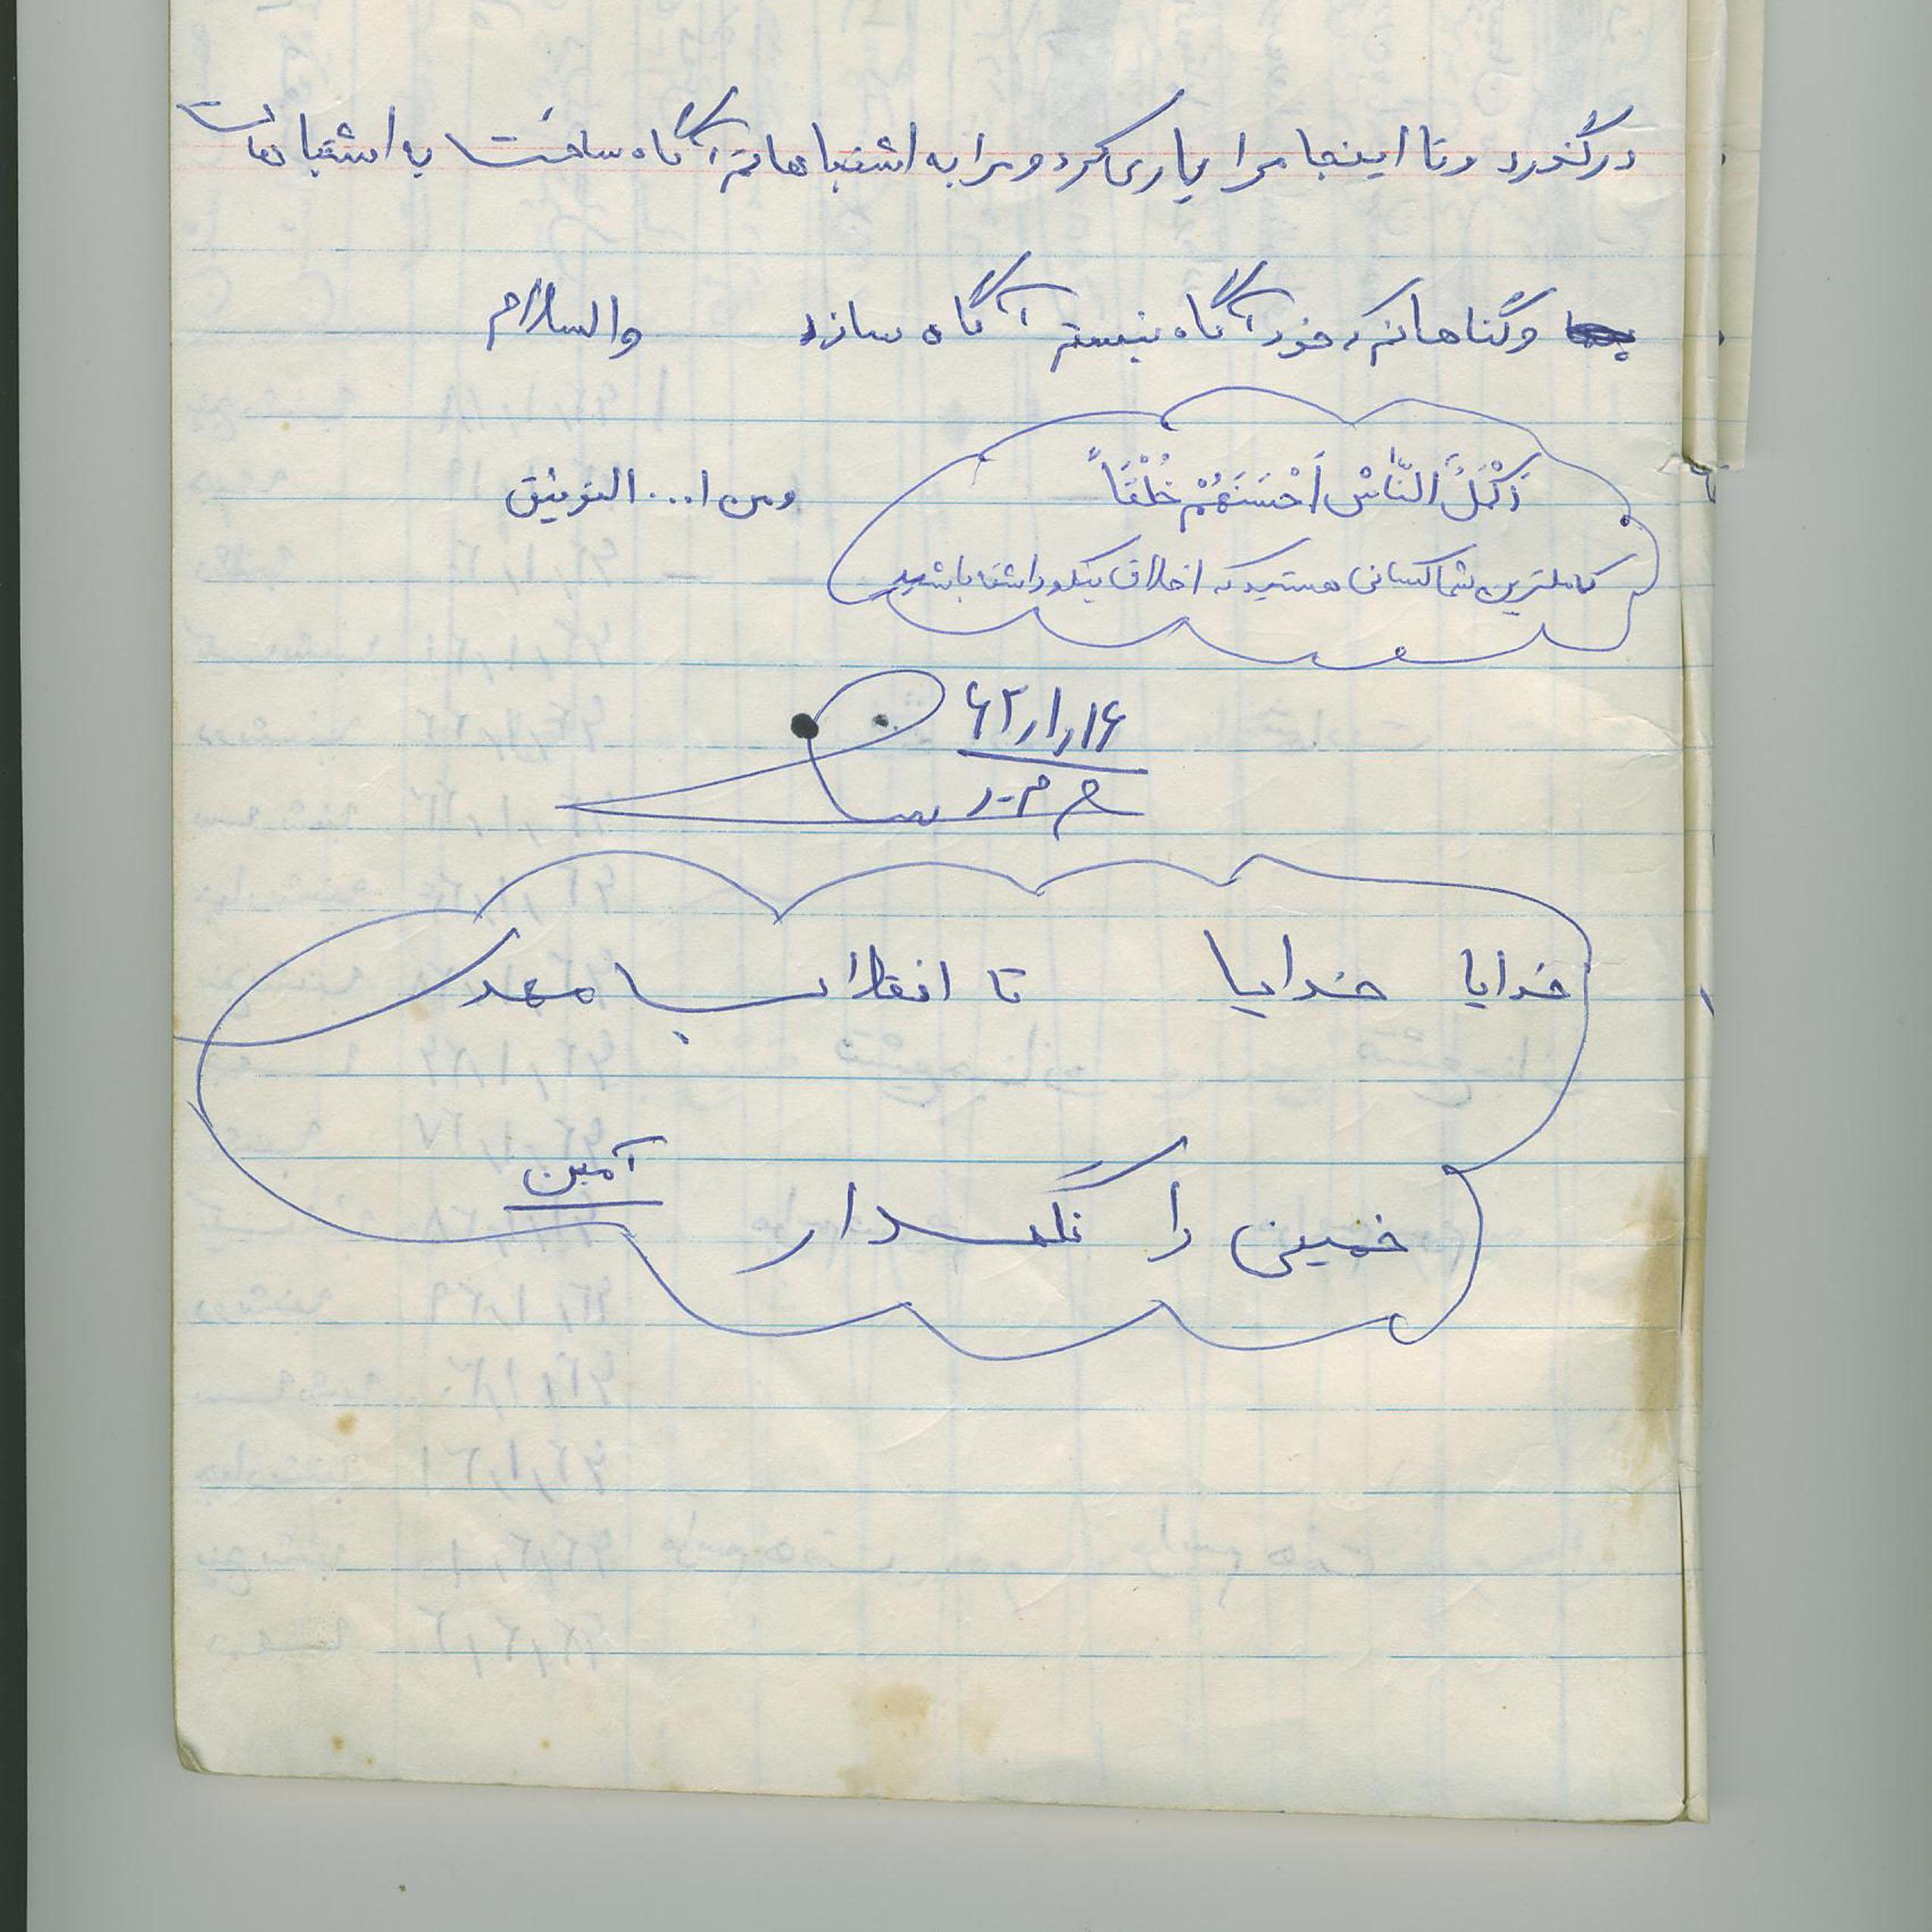 درگذرد و تا اینجا مرا یاری کرد و مرا به اشتباهاتم آگاه ساخت به اشتباهات
و گناهانم که خود آگاه نیستم آگاه سازد والسلام
اَکْمَلُ النّاسْ اَحْسَنَهُمْ خُلْقَاً
و من ا... التوفیق
کاملترین شما کسانی هستید که اخلاق نیکو داشته باشید
۶۲/۱/۱۶
خدایا خدایا تا انقلاب مهدی
خمینی را نگهدار آمین